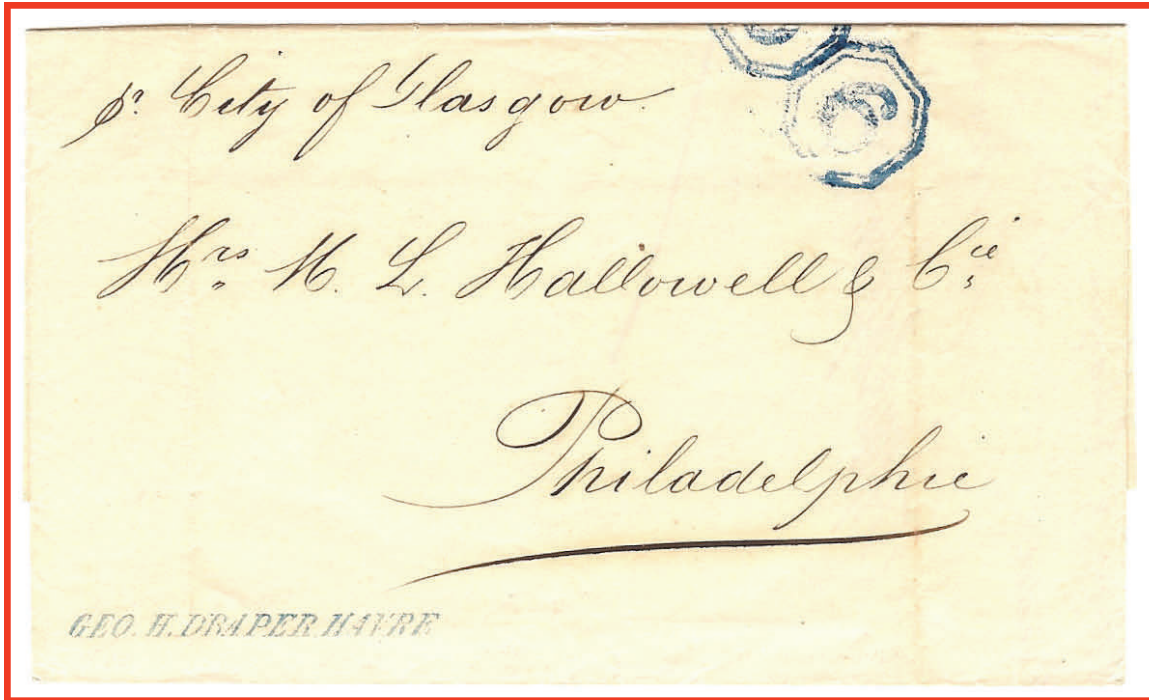 6
6
pr. City of Glasgow.
Mrs M. L. Hallowell & Cie
Philadelphie
GEO. H. DRAPER HAVRE